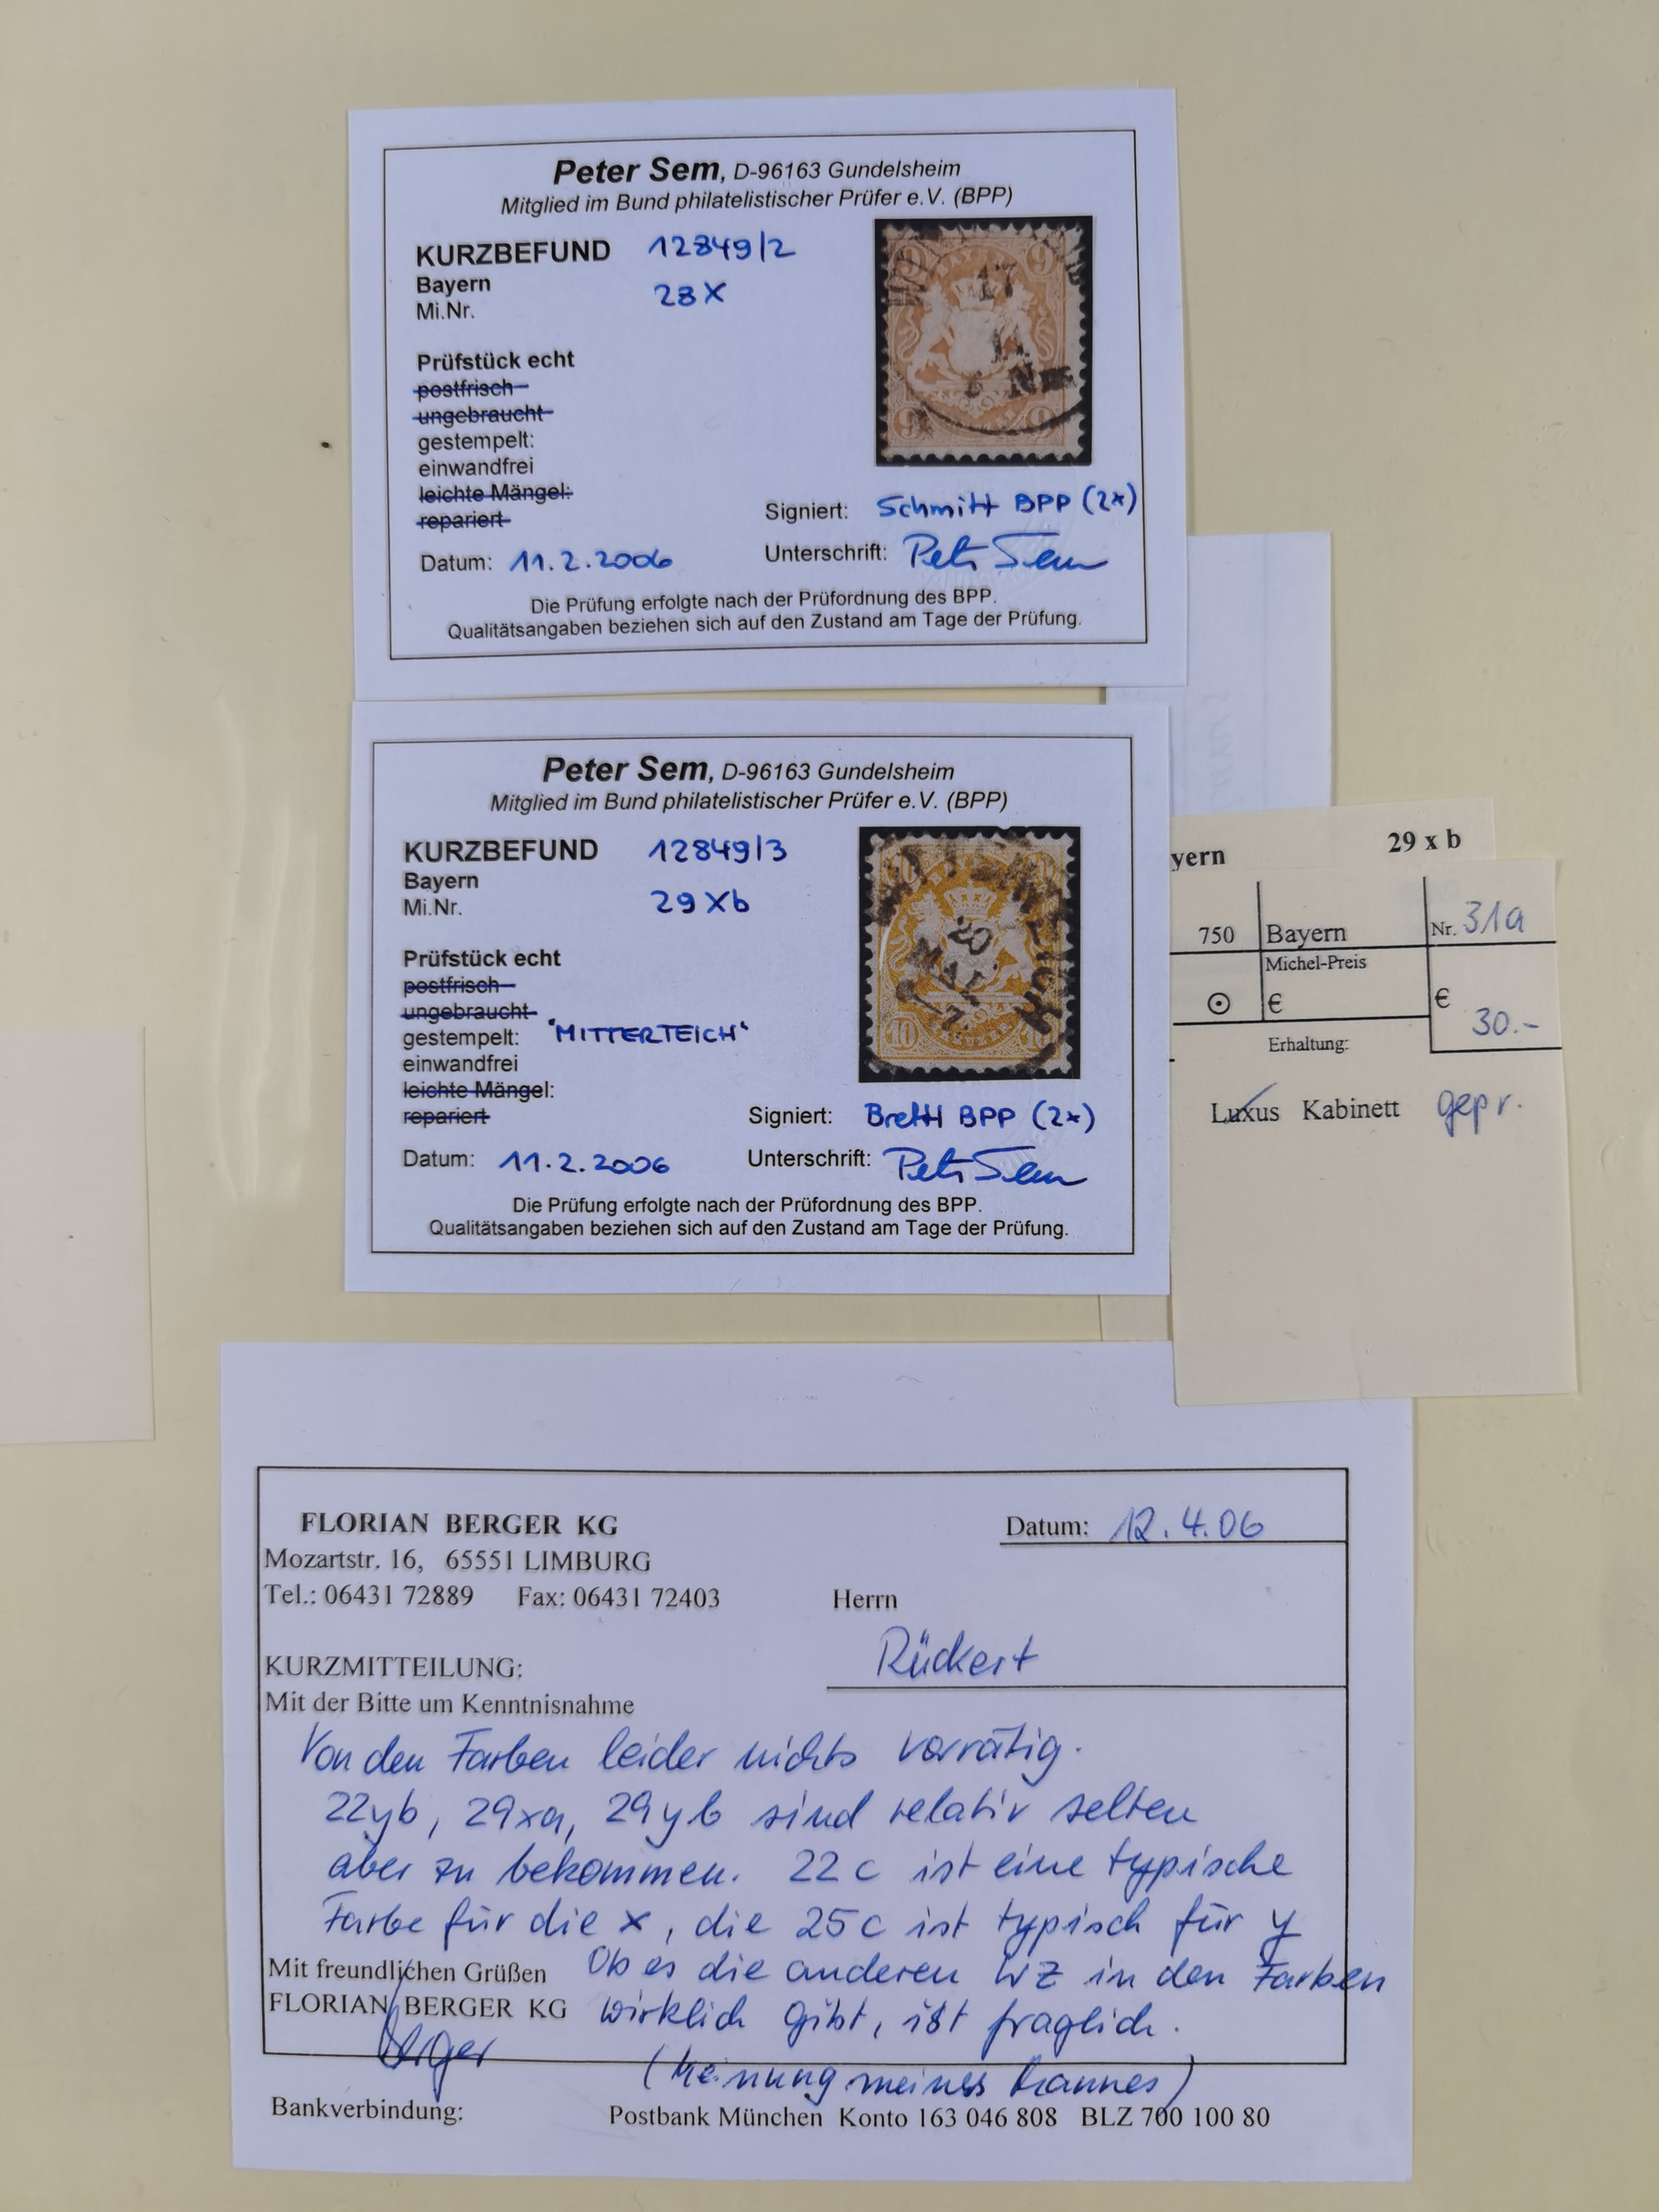 Peter Sem, D-96163 Gundelsheim
Mitglied im Bund philatelistischer Prüfer e.V. (BPP)
KURZBEFUND 12849/2
Bayern
Mi.Nr. 28X
Prüfstück echt
postfrisch
ungebraucht
gestempelt:
einwandfrei
leichte Mängel:
repariert
9 BAYERN 9
17
11
N
9 9
Signiert: Schmitt BPP (2x)
Datum: 11.2.2006 Unterschrift: Peter Sem
Die Prüfung erfolgte nach der Prüfordnung des BPP.
Qualitätsangaben beziehen sich auf den Zustand am Tage der Prüfung.
Peter Sem, D-96163 Gundelsheim
Mitglied im Bund philatelistischer Prüfer e.V. (BPP)
KURZBEFUND 12849/3
Bayern
Mi.Nr. 29 Xb
Prüfstück echt
postfrisch
ungebraucht
gestempelt: "MITTERTEICH"
einwandfrei
leichte Mängel:
repariert
20
MAI
10 KREUZER 10
Signiert: Brettl BPP (2x)
Datum: 11.2.2006 Unterschrift: Peter Sem
Die Prüfung erfolgte nach der Prüfordnung des BPP.
Qualitätsangaben beziehen sich auf den Zustand am Tage der Prüfung.
yern 29 x b
750 Bayern Nr. 31a
Michel-Preis
€ € 30.-
Erhaltung:
Luxus Kabinett gepr.
FLORIAN BERGER KG Datum: 12.4.06
Mozartstr. 16, 65551 LIMBURG
Tel.: 06431 72889 Fax: 06431 72403 Herrn
Rückert
KURZMITTEILUNG:
Mit der Bitte um Kenntnisnahme
Von den Farben leider nichts vorrätig.
22yb, 29xa, 29yb sind relativ selten
aber zu bekommen. 22c ist eine typische
Farbe für die x, die 25c ist typisch für y
Mit freundlichen Grüßen Ob es die anderen WZ in den Farben
FLORIAN BERGER KG wirklich gibt, ist fraglich.
Berger (Meinung meines Mannes)
Bankverbindung: Postbank München Konto 163 046 808 BLZ 700 100 80